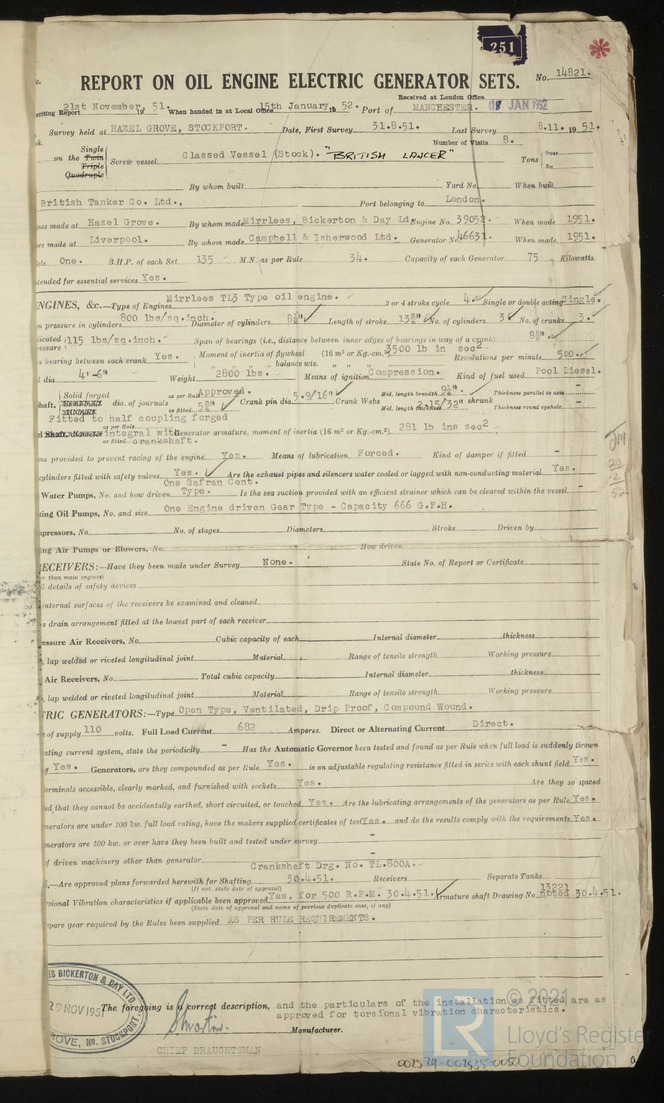 251
REPORT ON OIL ENGINE ELECTRIC GENERATOR SETS. No. 14821.
Received at London Office
writing Report 21st November, 19 51. When handed in at Local Office 15th January, 19 52. Port of MANCHESTER. 08 JAN 1952
Survey held at HAZEL GROVE, STOCKPORT. Date, First Survey 31.8.51. Last Survey 8.11. 19 51.
Number of Visits 8.
on the Single Twin Triple Quadruple Screw vessel Classed Vessel (Stock). "BRITISH LANCER" Tons Gross Net
By whom built Yard No. When built
British Tanker Co. Ltd., Port belonging to London.
nes made at Hazel Grove. By whom made Mirrlees, Bickerton & Day Ld. Engine No. 39052. When made 1951.
rs made at Liverpool. By whom made Campbell & Isherwood Ltd. Generator No. 46631. When made 1951.
ets One. B.H.P. of each Set 135 M.N. as per Rule 34. Capacity of each Generator 75 Kilowatts.
tended for essential services Yes.
ENGINES, &c.—Type of Engines Mirrlees TL3 Type oil engine. 2 or 4 stroke cycle 4. Single or double acting Single.
m pressure in cylinders 800 lbs/sq.inch. Diameter of cylinders Length of stroke No. of cylinders 3 No. of cranks 3.
dicated pressure 115 lbs/sq.inch. Span of bearings (i.e., distance between inner edges of bearings in way of a crank)
a bearing between each crank Yes. Moment of inertia of flywheel (16 m² or Kg.-cm.²) 3500 lb in sec² Revolutions per minute 500.
" " " balance wts. " " "
l dia 4'-6" Weight 2800 lbs. Means of ignition Compression. Kind of fuel used Pool Diesel.
haft, Solid forged dia. of journals as per Rule Approved. as fitted Crank pin dia. 5.9/16" Crank Webs Mid. length breadth Mid. length thickness 2.15/32" shrunk Thickness parallel to axis - Thickness round eyehole -
Fitted to half coupling forged
integral with Generator armature, moment of inertia (16 m² or Kg.-cm.²) 281 lb ins sec²
as fitted crankshaft.
ns provided to prevent racing of the engine Yes. Means of lubrication Forced. Kind of damper if fitted -
cylinders fitted with safety valves Yes. Are the exhaust pipes and silencers water cooled or lagged with non-conducting material Yes.
One Safran Cent.
Water Pumps, No. and how driven Type. Is the sea suction provided with an efficient strainer which can be cleared within the vessel -
ting Oil Pumps, No. and size One Engine driven Gear Type - Capacity 666 G.P.H.
mpressors, No. No. of stages Diameters Stroke Driven by
ing Air Pumps or Blowers, No. How driven
ECEIVERS:—Have they been made under Survey None. State No. of Report or Certificate
er than main engines)
l details of safety devices
internal surfaces of the receivers be examined and cleaned
a drain arrangement fitted at the lowest part of each receiver
ressure Air Receivers, No. Cubic capacity of each Internal diameter thickness
, lap welded or riveted longitudinal joint Material Range of tensile strength Working pressure
Air Receivers, No. Total cubic capacity Internal diameter thickness
, lap welded or riveted longitudinal joint Material Range of tensile strength Working pressure
TRIC GENERATORS:—Type Open Type, Ventilated, Drip Proof, Compound Wound.
e of supply 110 volts. Full Load Current 682 Amperes. Direct or Alternating Current Direct.
ating current system, state the periodicity - Has the Automatic Governor been tested and found as per Rule when full load is suddenly thrown
f Yes. Generators, are they compounded as per Rule Yes. is an adjustable regulating resistance fitted in series with each shunt field Yes.
erminals accessible, clearly marked, and furnished with sockets Yes. Are they so spaced
ed, that they cannot be accidentally earthed, short circuited, or touched Yes. Are the lubricating arrangements of the generators as per Rule Yes.
nerators are under 100 kw. full load rating, have the makers supplied certificates of test Yes. and do the results comply with the requirements Yes.
nerators are 100 kw. or over have they been built and tested under survey -
f driven machinery other than generator -
Crankshaft Drg. No. TL.800A.
.—Are approved plans forwarded herewith for Shafting 30.4.51. Receivers Separate Tanks
(If not, state date of approval)
sional Vibration characteristics if applicable been approved Yes, for 500 R.P.M. 30.4.51. Armature shaft Drawing No. 13221 noted 30.4.51.
(State date of approval and name of previous duplicate case, if any)
pare gear required by the Rules been supplied AS PER RULE REQUIREMENTS.
ES BICKERTON & DAY LTD
29 NOV 1951
GROVE, NR. STOCKPORT.
The foregoing is a correct description, and the particulars of the installation as fitted are as
approved for torsional vibration characteristics.
Manufacturer.
CHIEF DRAUGHTSMAN
LR © 2021
Lloyd's Register
Foundation